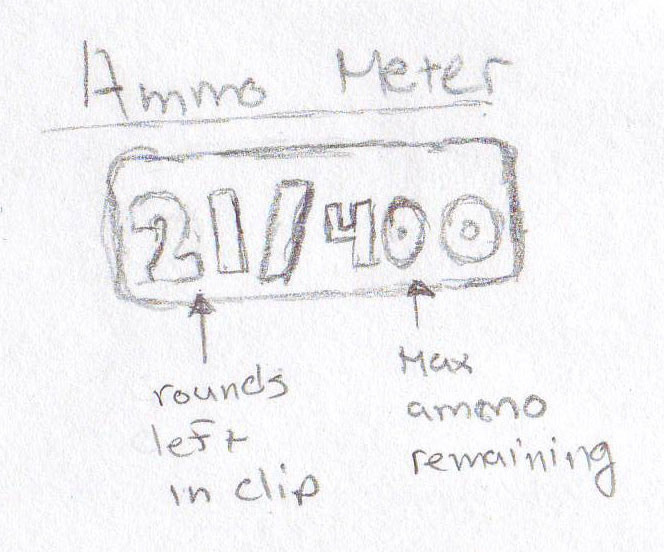 Ammo Meter
21/400
rounds
left
in clip
Max
ammo
remaining